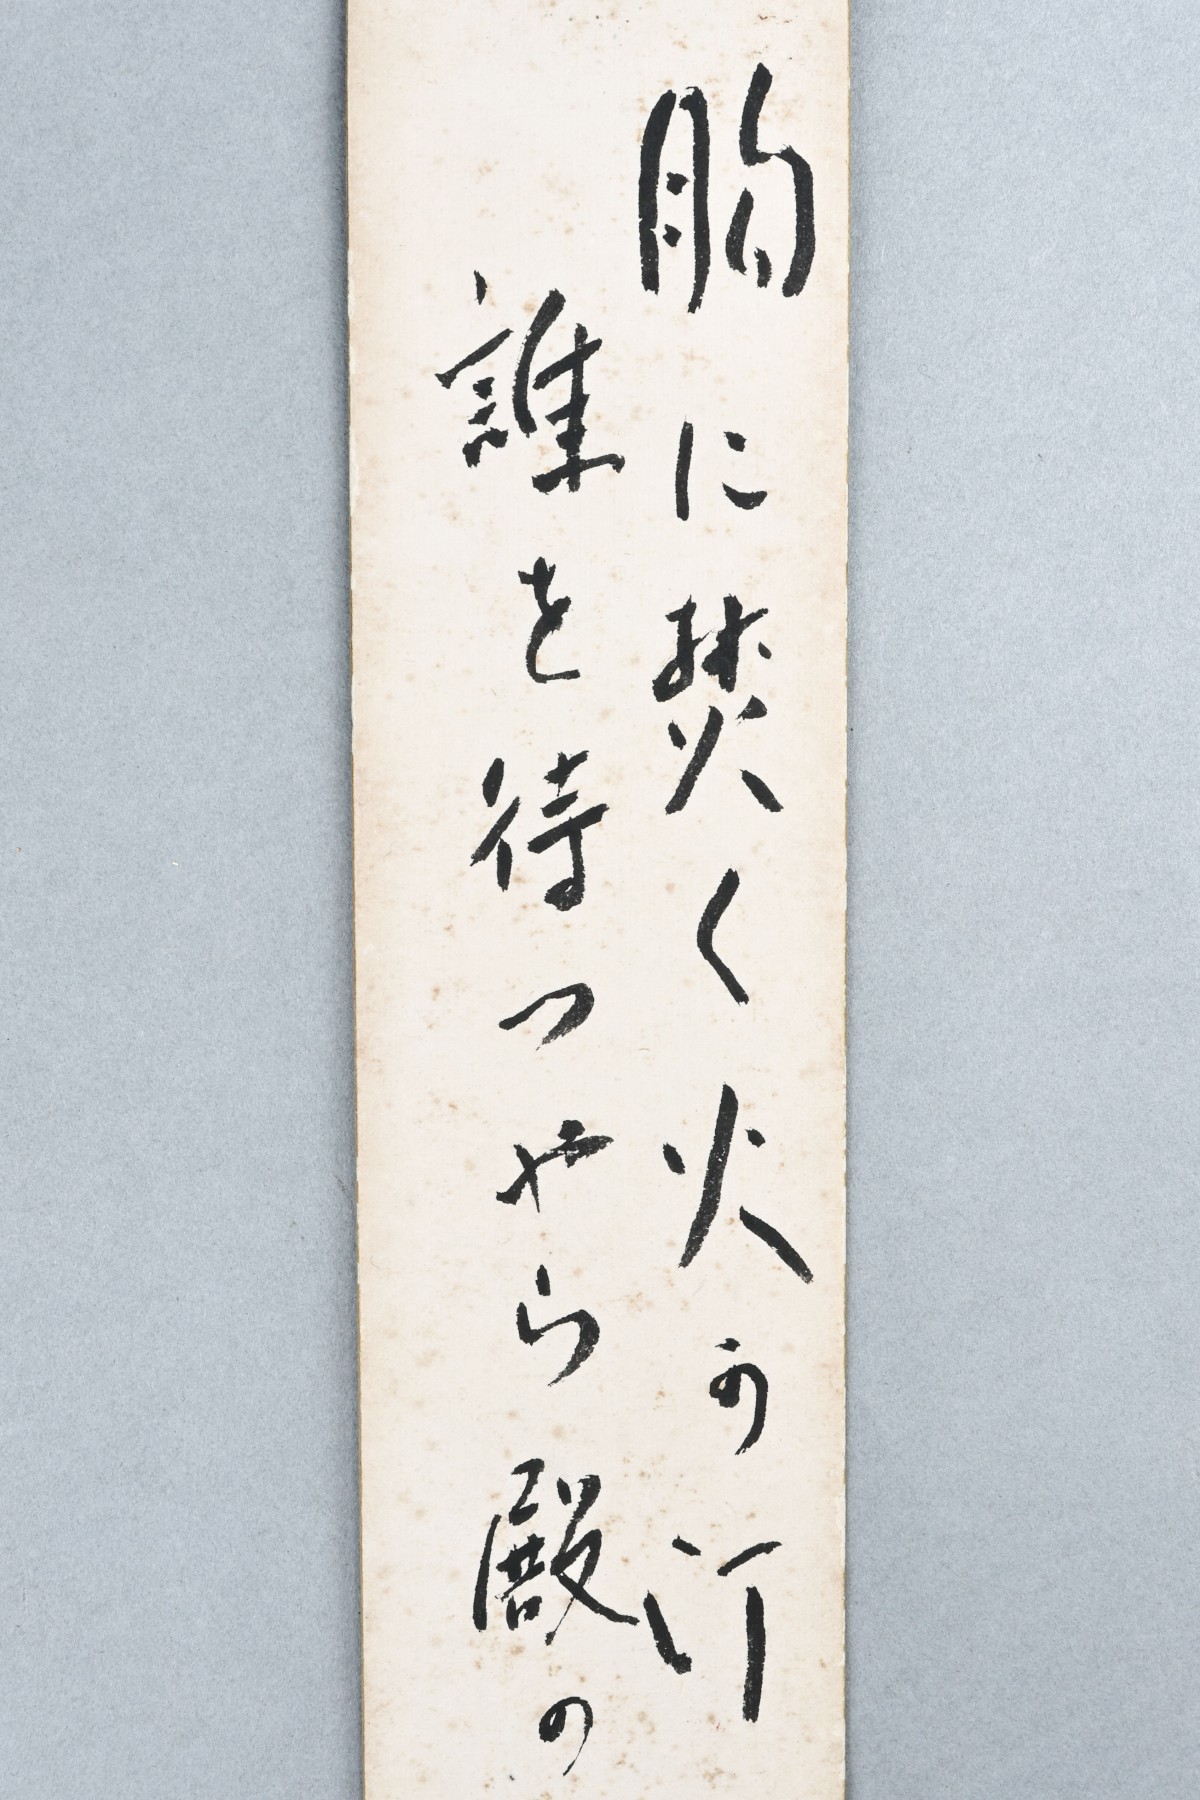 胸に焚く火か汀
誰を待つやら殿の